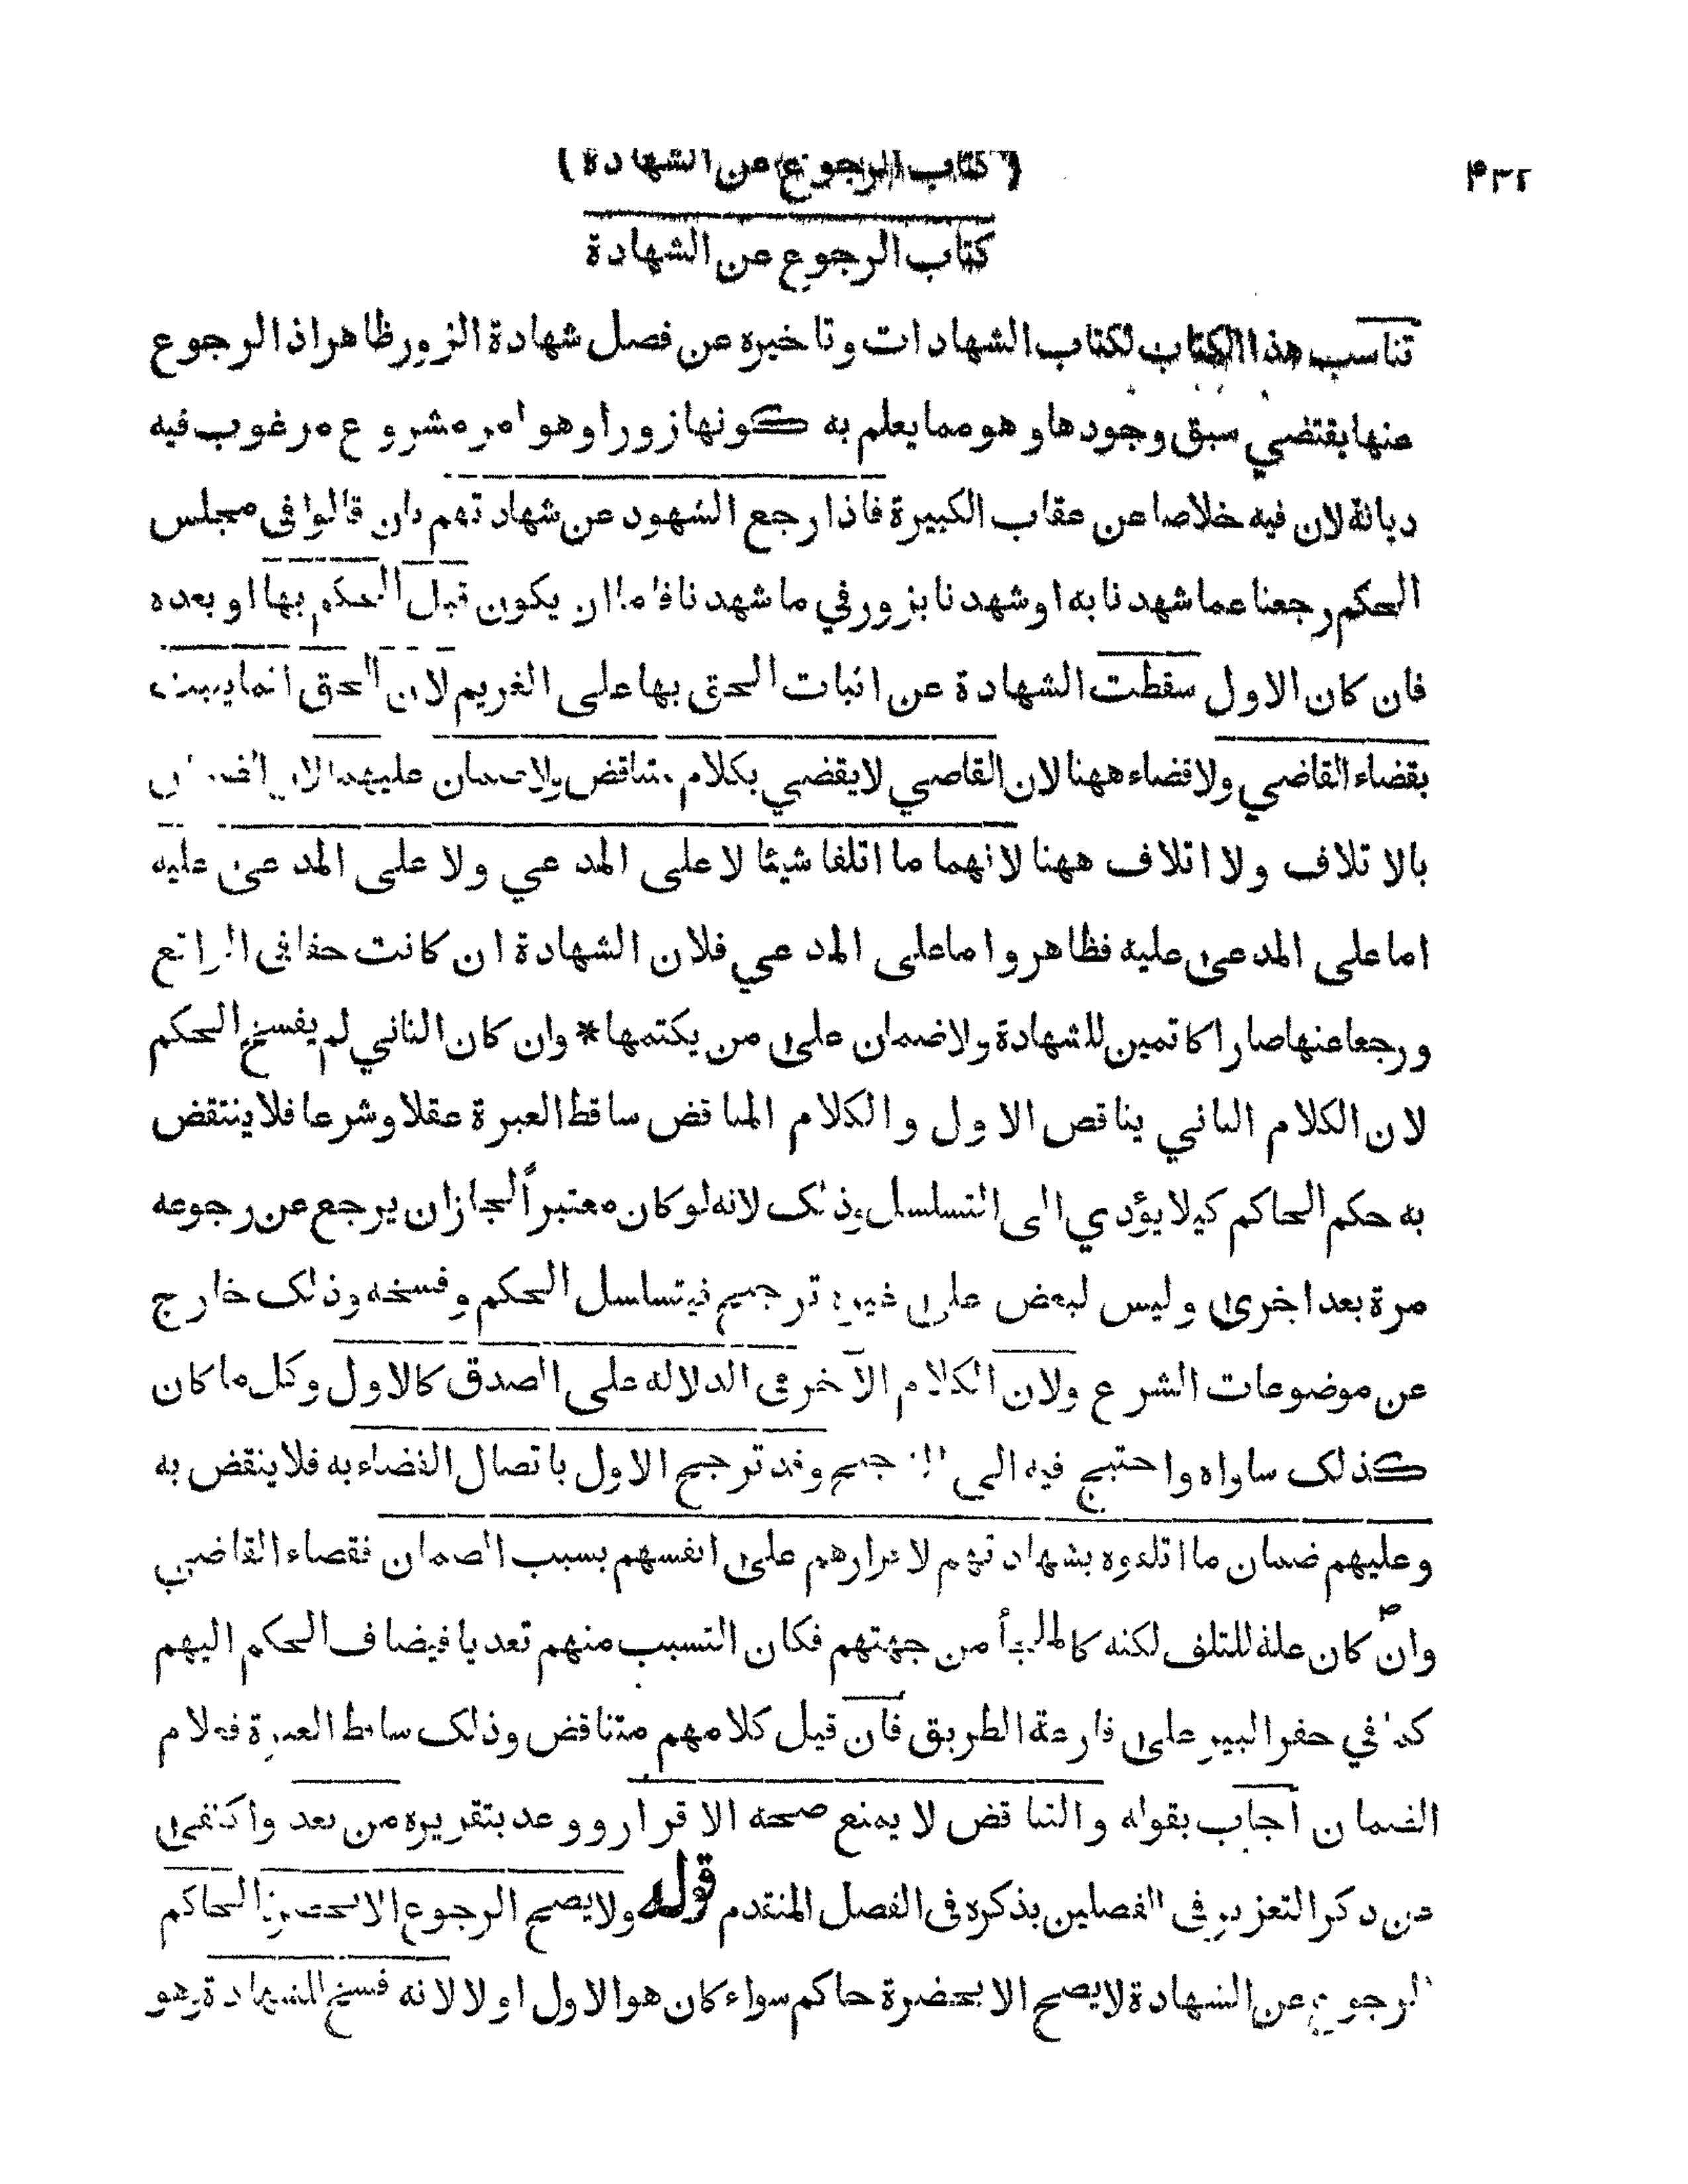 ( كتاب الرجوع عن الشهادة ) ۴۳۲
كتاب الرجوع عن الشهادة
تناسب هذا الكتاب لكتاب الشهادات وتاخيره عن فصل شهادة الزور ظاهر اذ الرجوع
عنها يقتضي سبق وجودها وهو مما يعلم به كونها زورا وهو امر مشروع مرغوب فيه
ديانة لان فيه خلاصا عن عقاب الكبيرة فاذا رجع الشهود عن شهادتهم بان قالوا فى مجلس
الحكم رجعنا عما شهدنا به او شهدنا بزور في ما شهدنا فاما ان يكون قبل الحكم بها او بعده
فان كان الاول سقطت الشهادة عن اثبات الحق بها على الغريم لان الحق انما يثبت
بقضاء القاضي ولا قضاء ههنا لان القاضي لا يقضي بكلام متناقض ولا ضمان عليهما لان الضمان
بالاتلاف ولا اتلاف ههنا لانهما ما اتلفا شيئا لا على المدعي ولا على المدعى عليه
اما على المدعى عليه فظاهر واما على المدعي فلان الشهادة ان كانت حقا فى الواقع
ورجعا عنها صارا كاتمين للشهادة ولا ضمان على من يكتمها * وان كان الثاني لم يفسخ الحكم
لان الكلام الثاني يناقض الاول والكلام المناقض ساقط العبرة عقلا وشرعا فلا ينتقض
به حكم الحاكم كيلا يؤدي الى التسلسل وذلك لانه لو كان معتبرأ لجاز ان يرجع عن رجوعه
مرة بعد اخرى وليس لبعض على غيره ترجيح فيتساسل الحكم وفسخه وذلك خارج
عن موضوعات الشرع ولان الكلام الآخر فى الدلالة على الصدق كالاول وكل ما كان
كذلك ساواه واحتيج فيه الى الترجيح وقد ترجح الاول باتصال القضاء به فلا ينقض به
وعليهم ضمان ما اتلفوه بشهادتهم لاقرارهم على انفسهم بسبب الضمان فقضاء القاضي
وان كان علة للتلف لكنه كالملجأ من جهتهم فكان التسبب منهم تعديا فيضاف الحكم اليهم
كما في حفر البير على قارعة الطريق فان قيل كلامهم متناقض وذلك ساقط العبرة فعلام
الضمان أجاب بقوله والتناقض لا يمنع صحة الاقرار ووعد بتقريره من بعد واكتفى
عن ذكر التعزير فى الفصلين بذكره فى الفصل المتقدم قوله ولا يصح الرجوع الا بحضرة الحاكم
الرجوع عن الشهادة لا يصح الا بحضرة حاكم سواء كان هو الاول او لا لانه فسخ للشهادة وهو